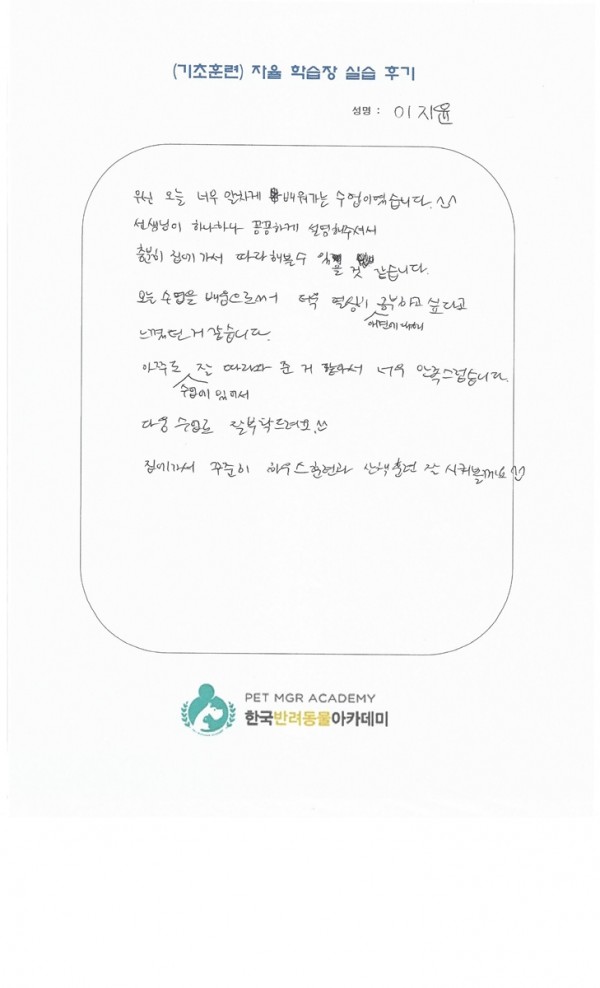 (기초훈련) 자율 학습장 실습 후기
성명 : 이지윤
우선 오늘 너무 알차게 배워가는 수업이였습니다. ^^
선생님이 하나하나 꼼꼼하게 설명해주셔서
충분히 집에 가서 따라해볼 수 있을 것 같습니다.
오늘 수업을 배움으로써 더욱 열심히 애견에 대해 공부하고 싶다고
느꼈던 거 같습니다.
아주도 수업에 있어서 잘 따라와 준 거 같아서 너무 만족스럽습니다.
다음 수업도 잘부탁드려요.^^
집에가서 꾸준히 하우스훈련과 산책훈련 잘 시켜볼께요
PET MGR ACADEMY
한국반려동물아카데미